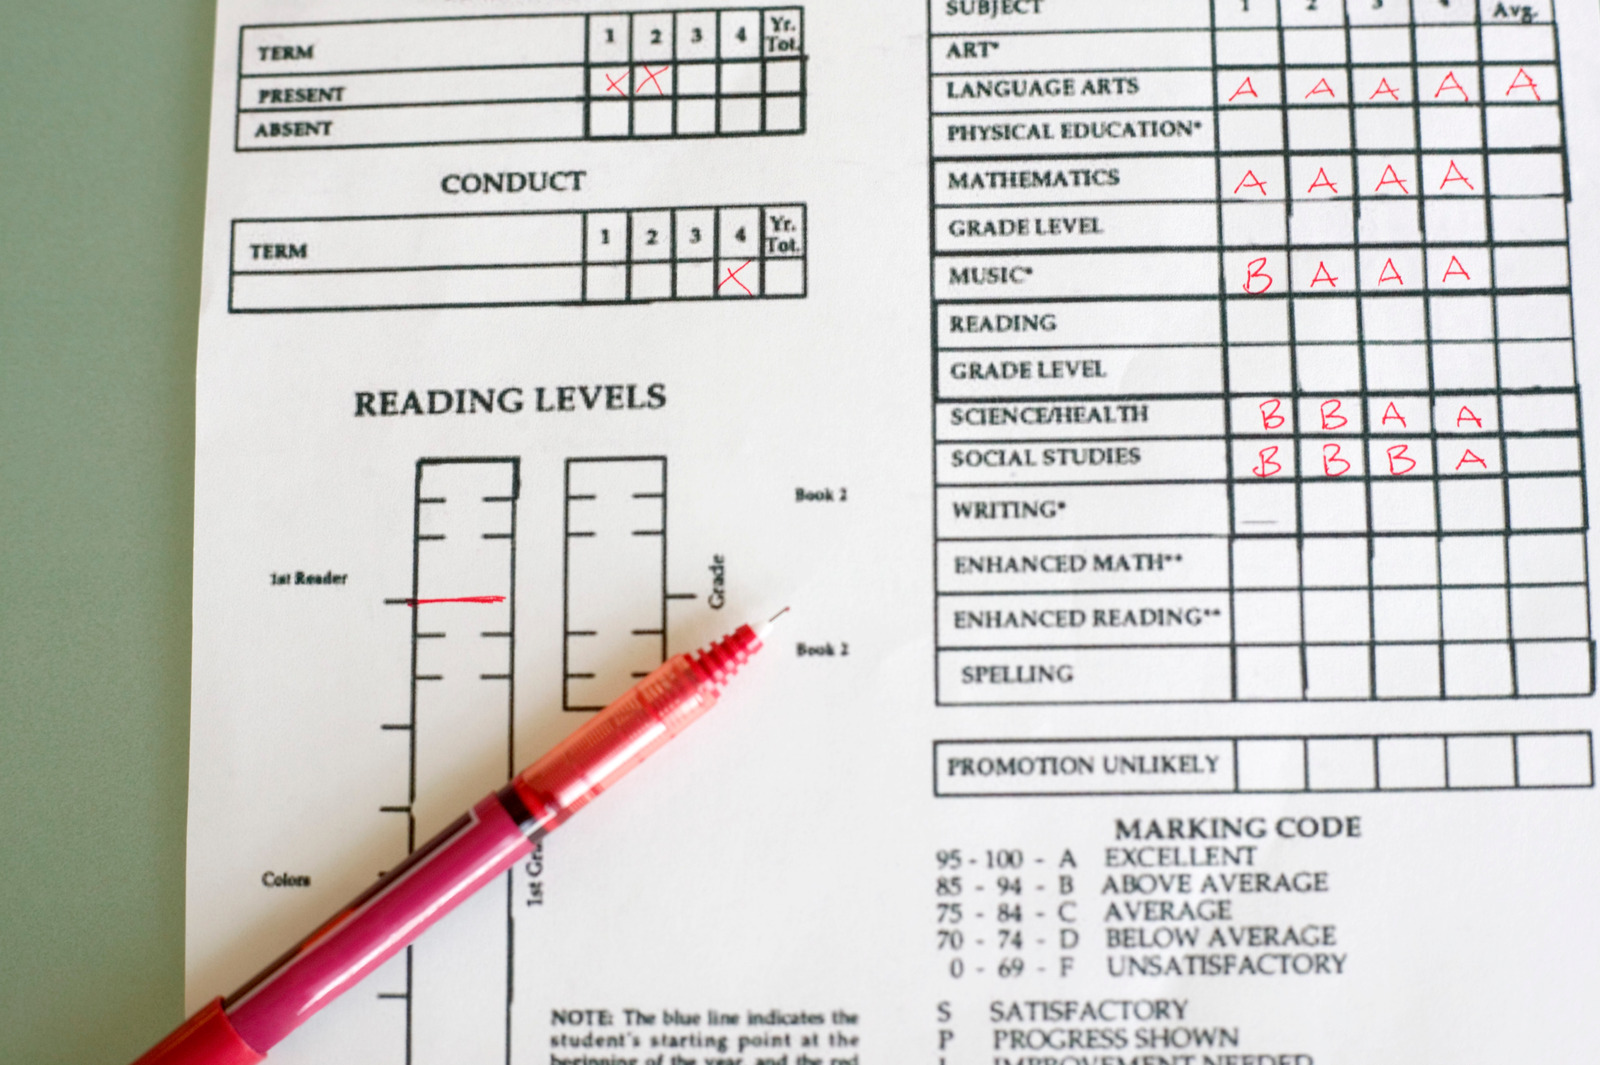 TERM 1 2 3 4 Yr. Tot.
PRESENT X X
ABSENT
CONDUCT
TERM 1 2 3 4 Yr. Tot.
X
READING LEVELS
Book 2
1st Reader
Grade
Book 2
Colors
1st Gra
NOTE: The blue line indicates the
student's starting point at the
beginning of the year, and the red
SUBJECT 1 2 3 4 Avg.
ART*
LANGUAGE ARTS A A A A A
PHYSICAL EDUCATION*
MATHEMATICS A A A A
GRADE LEVEL
MUSIC* B A A A
READING
GRADE LEVEL
SCIENCE/HEALTH B B A A
SOCIAL STUDIES B B B A
WRITING*
ENHANCED MATH**
ENHANCED READING**
SPELLING
PROMOTION UNLIKELY
MARKING CODE
95 - 100 - A EXCELLENT
85 - 94 - B ABOVE AVERAGE
75 - 84 - C AVERAGE
70 - 74 - D BELOW AVERAGE
0 - 69 - F UNSATISFACTORY
S SATISFACTORY
P PROGRESS SHOWN
I IMPROVEMENT NEEDED